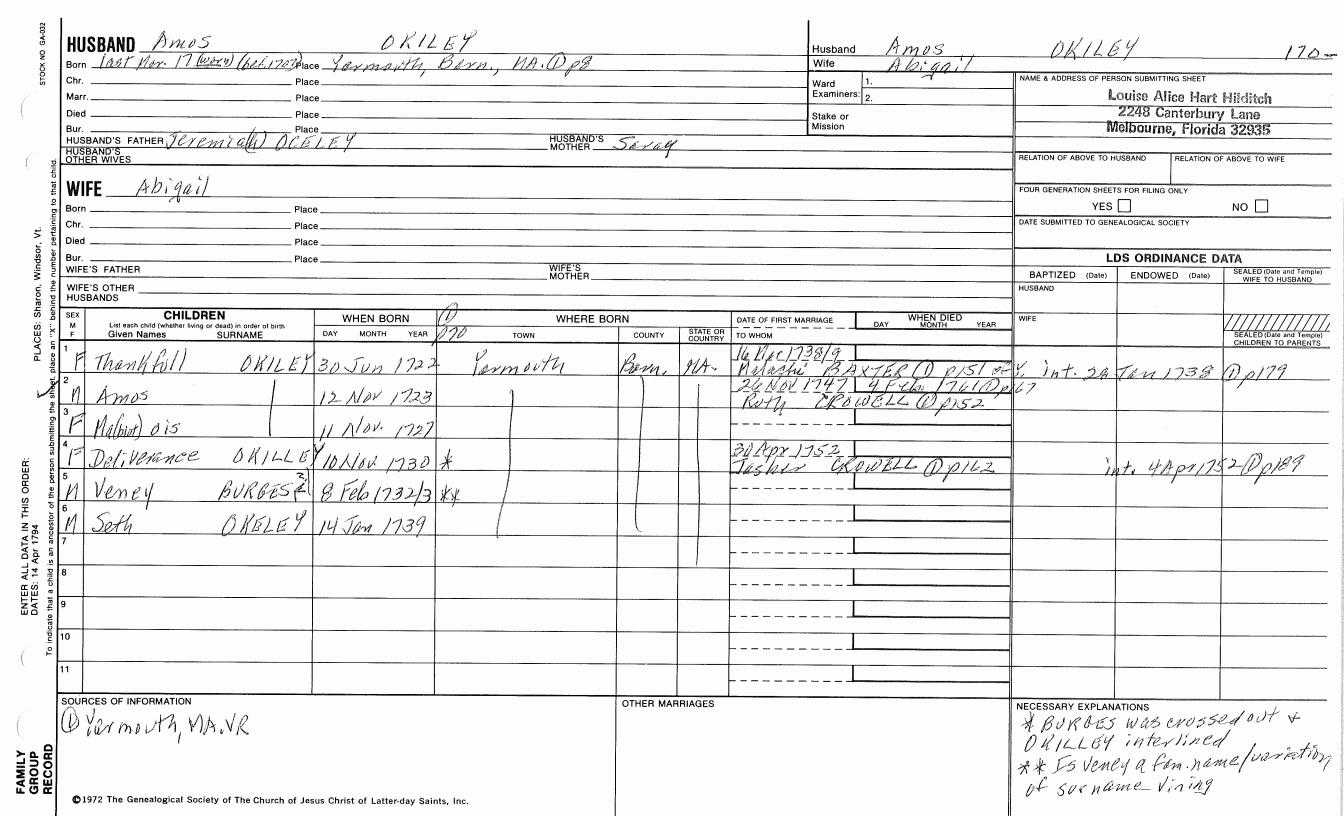 STOCK NO GA-032
HUSBAND Amos OKILEY
Born last Nov. 17 (worn) (bet. 1703) Place Yarmouth, Barn., MA. ① p8
Chr. Place
Marr. Place
Died Place
Bur. Place
HUSBAND'S FATHER Jeremia(h) OCELEY HUSBAND'S MOTHER Saray
HUSBAND'S OTHER WIVES
Husband Amos OKILEY 170-
Wife Abigail
Ward 1.
Examiners: 2.
Stake or
Mission
NAME & ADDRESS OF PERSON SUBMITTING SHEET
Louise Alice Hart Hilditch
2248 Canterbury Lane
Melbourne, Florida 32935
RELATION OF ABOVE TO HUSBAND RELATION OF ABOVE TO WIFE
FOUR GENERATION SHEETS FOR FILING ONLY
YES NO
DATE SUBMITTED TO GENEALOGICAL SOCIETY
LDS ORDINANCE DATA
BAPTIZED (Date) ENDOWED (Date) SEALED (Date and Temple) WIFE TO HUSBAND
HUSBAND
WIFE
SEALED (Date and Temple) CHILDREN TO PARENTS
WIFE Abigail
Born Place
Chr. Place
Died Place
Bur. Place
WIFE'S FATHER WIFE'S MOTHER
WIFE'S OTHER HUSBANDS
SEX M F CHILDREN WHEN BORN ① WHERE BORN DATE OF FIRST MARRIAGE WHEN DIED
List each child (whether living or dead) in order of birth
Given Names SURNAME DAY MONTH YEAR p70 TOWN COUNTY STATE OR COUNTRY TO WHOM DAY MONTH YEAR
1 F Thankfull OKILEY 30 Jun 1722 Yarmouth Barn. MA. 16 Dec 1738/9
Malashi BAXTER ① p151 of Y. int. 28 Jan 1738 ① p179
2 M Amos 12 Nov 1723 26 Nov 1747
Ruth CROWELL ① p152
3 F Ma(blot)ois 11 Nov. 1727
4 F Deliverance OKILLEY 10 Nov 1730 * 30 Apr 1752
Jasher CROWELL ① p162 int. 4 Apr 1752 ① p189
5 M Veney BURGES 8 Feb 1732/3 **
6 M Seth OKELEY 14 Jan 1739
7
8
9
10
11
SOURCES OF INFORMATION
① Yarmouth, MA. VR
OTHER MARRIAGES
NECESSARY EXPLANATIONS
* BURGES was crossed out +
OKILLEY interlined
** Is Veney a fam. name/variation
of surname Vining
©1972 The Genealogical Society of The Church of Jesus Christ of Latter-day Saints, Inc.
PLACES: Sharon, Windsor, Vt.
ENTER ALL DATA IN THIS ORDER:
DATES: 14 Apr 1794
To indicate that a child is an ancestor of the person submitting the sheet, place an "X" behind the number pertaining to that child.
FAMILY
GROUP
RECORD